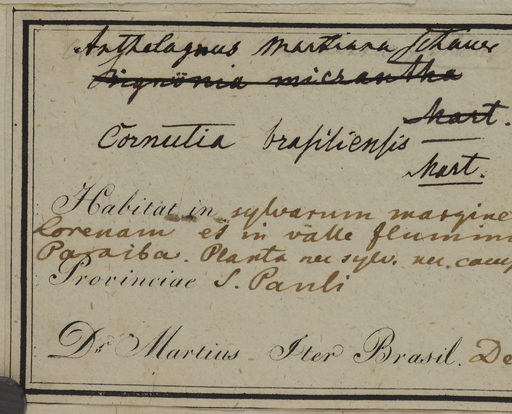 Anthelagnus Martiana Schauer
Bignonia micrantha
Mart.
Cornutia brasiliensis
Mart.
Habitat in sylvarum margine
Lorenam et in valle flumin
Paraiba. Planta nec sylv. nec. camp
Provinciae S. Pauli
Dr Martius Iter Brasil. De